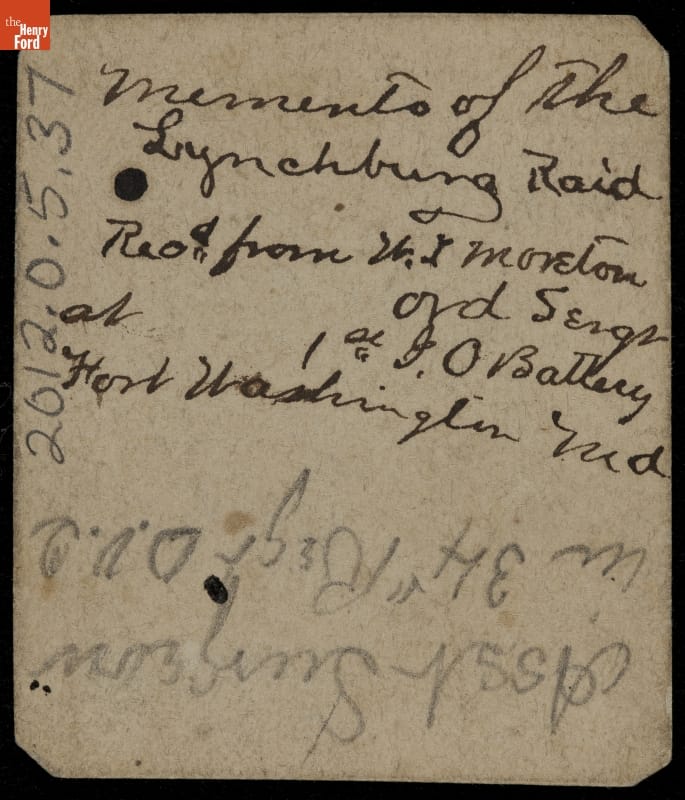 the
Henry
Ford
2012.0.5.37
Memento of the
Lynchburg Raid
Recd from W. I Moreton
Ord Sergt
at 1st I. O Battery
Fort Washington Md
Asst Surgeon
in 34" Regt O.V.I